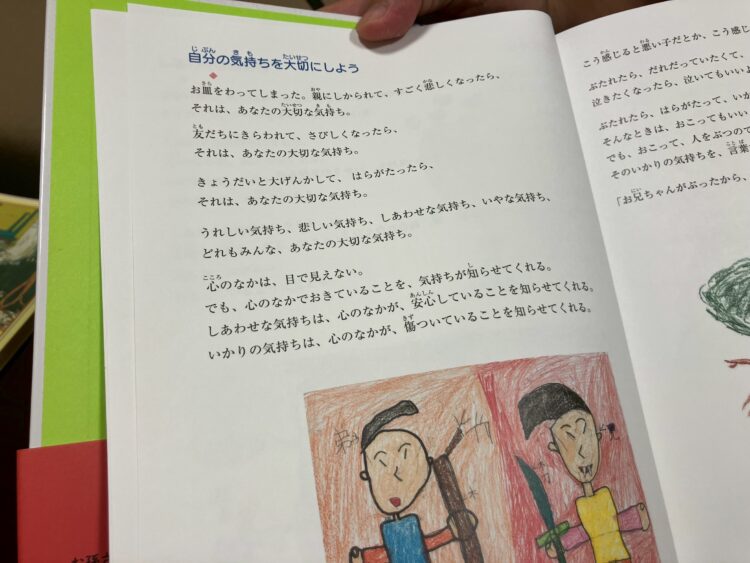 自分の気持ちを大切にしよう
お皿をわってしまった。親にしかられて、すごく悲しくなったら、
それは、あなたの大切な気持ち。
友だちにきらわれて、さびしくなったら、
それは、あなたの大切な気持ち。
きょうだいと大げんかして、はらがたったら、
それは、あなたの大切な気持ち。
うれしい気持ち、悲しい気持ち、しあわせな気持ち、いやな気持ち、
どれもみんな、あなたの大切な気持ち。
心のなかは、目で見えない。
でも、心のなかでおきていることを、気持ちが知らせてくれる。
しあわせな気持ちは、心のなかが、安心していることを知らせてくれる。
いかりの気持ちは、心のなかが、傷ついていることを知らせてくれる。
こう感じると悪い子だとか、こう感じ
ぶたれたら、だれだっていたくて、
泣きたくなったら、泣いてもいい
ぶたれたら、はらがたって、いか
そんなときは、おこってもいい
でも、おこって、人をぶつので
そのいかりの気持ちを、言葉
「お兄ちゃんがぶったから、